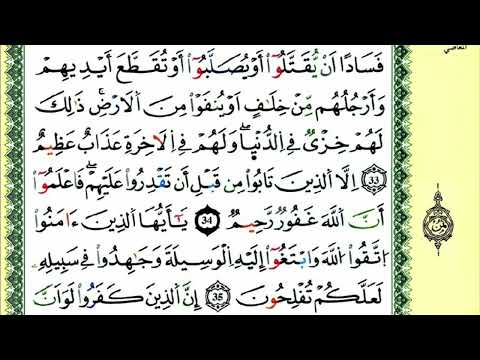 المعاصي
فَسَادًا اَنْ يُّقَتَّلُوٓاْ أَوْ يُصَلَّبُوٓاْ أَوْ تُقَطَّعَ أَيْدِيهِمْ
وَأَرْجُلُهُم مِّنْ خِلَٰفٍ اَوْ يُنفَوْاْ مِنَ اَلَارْضِ ذَٰلِكَ
لَهُمْ خِزْىٌ فِے اِلدُّنْيَا وَلَهُمْ فِے اِلَاخِرَةِ عَذَابٌ عَظِيمٌ
33 اِلَّا اَلذِينَ تَابُواْ مِن قَبْلِ أَن تَقْدِرُواْ عَلَيْهِمْ فَاعْلَمُوٓاْ
أَنَّ اَللَّهَ غَفُورٌ رَّحِيمٌ 34 يَٰٓأَيُّهَا اَلذِينَ ءَامَنُواْ
اُ۪تَّقُواْ اُللَّهَ وَابْتَغُوٓاْ إِلَيْهِ اِلْوَسِيلَةَ وَجَٰهِدُواْ فِے سَبِيلِهِۦ
لَعَلَّكُمْ تُفْلِحُونَ 35 إِنَّ اَلذِينَ كَفَرُواْ لَوَ اَنَّ
ثمن